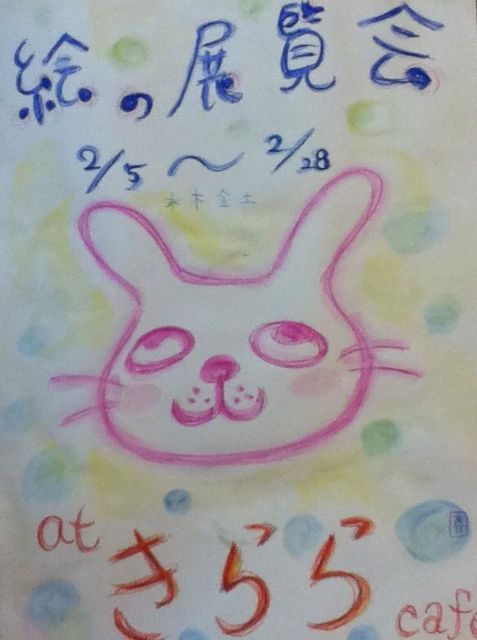 絵の展覧会
2/5～2/28
水木金土
at
きらら
cafe